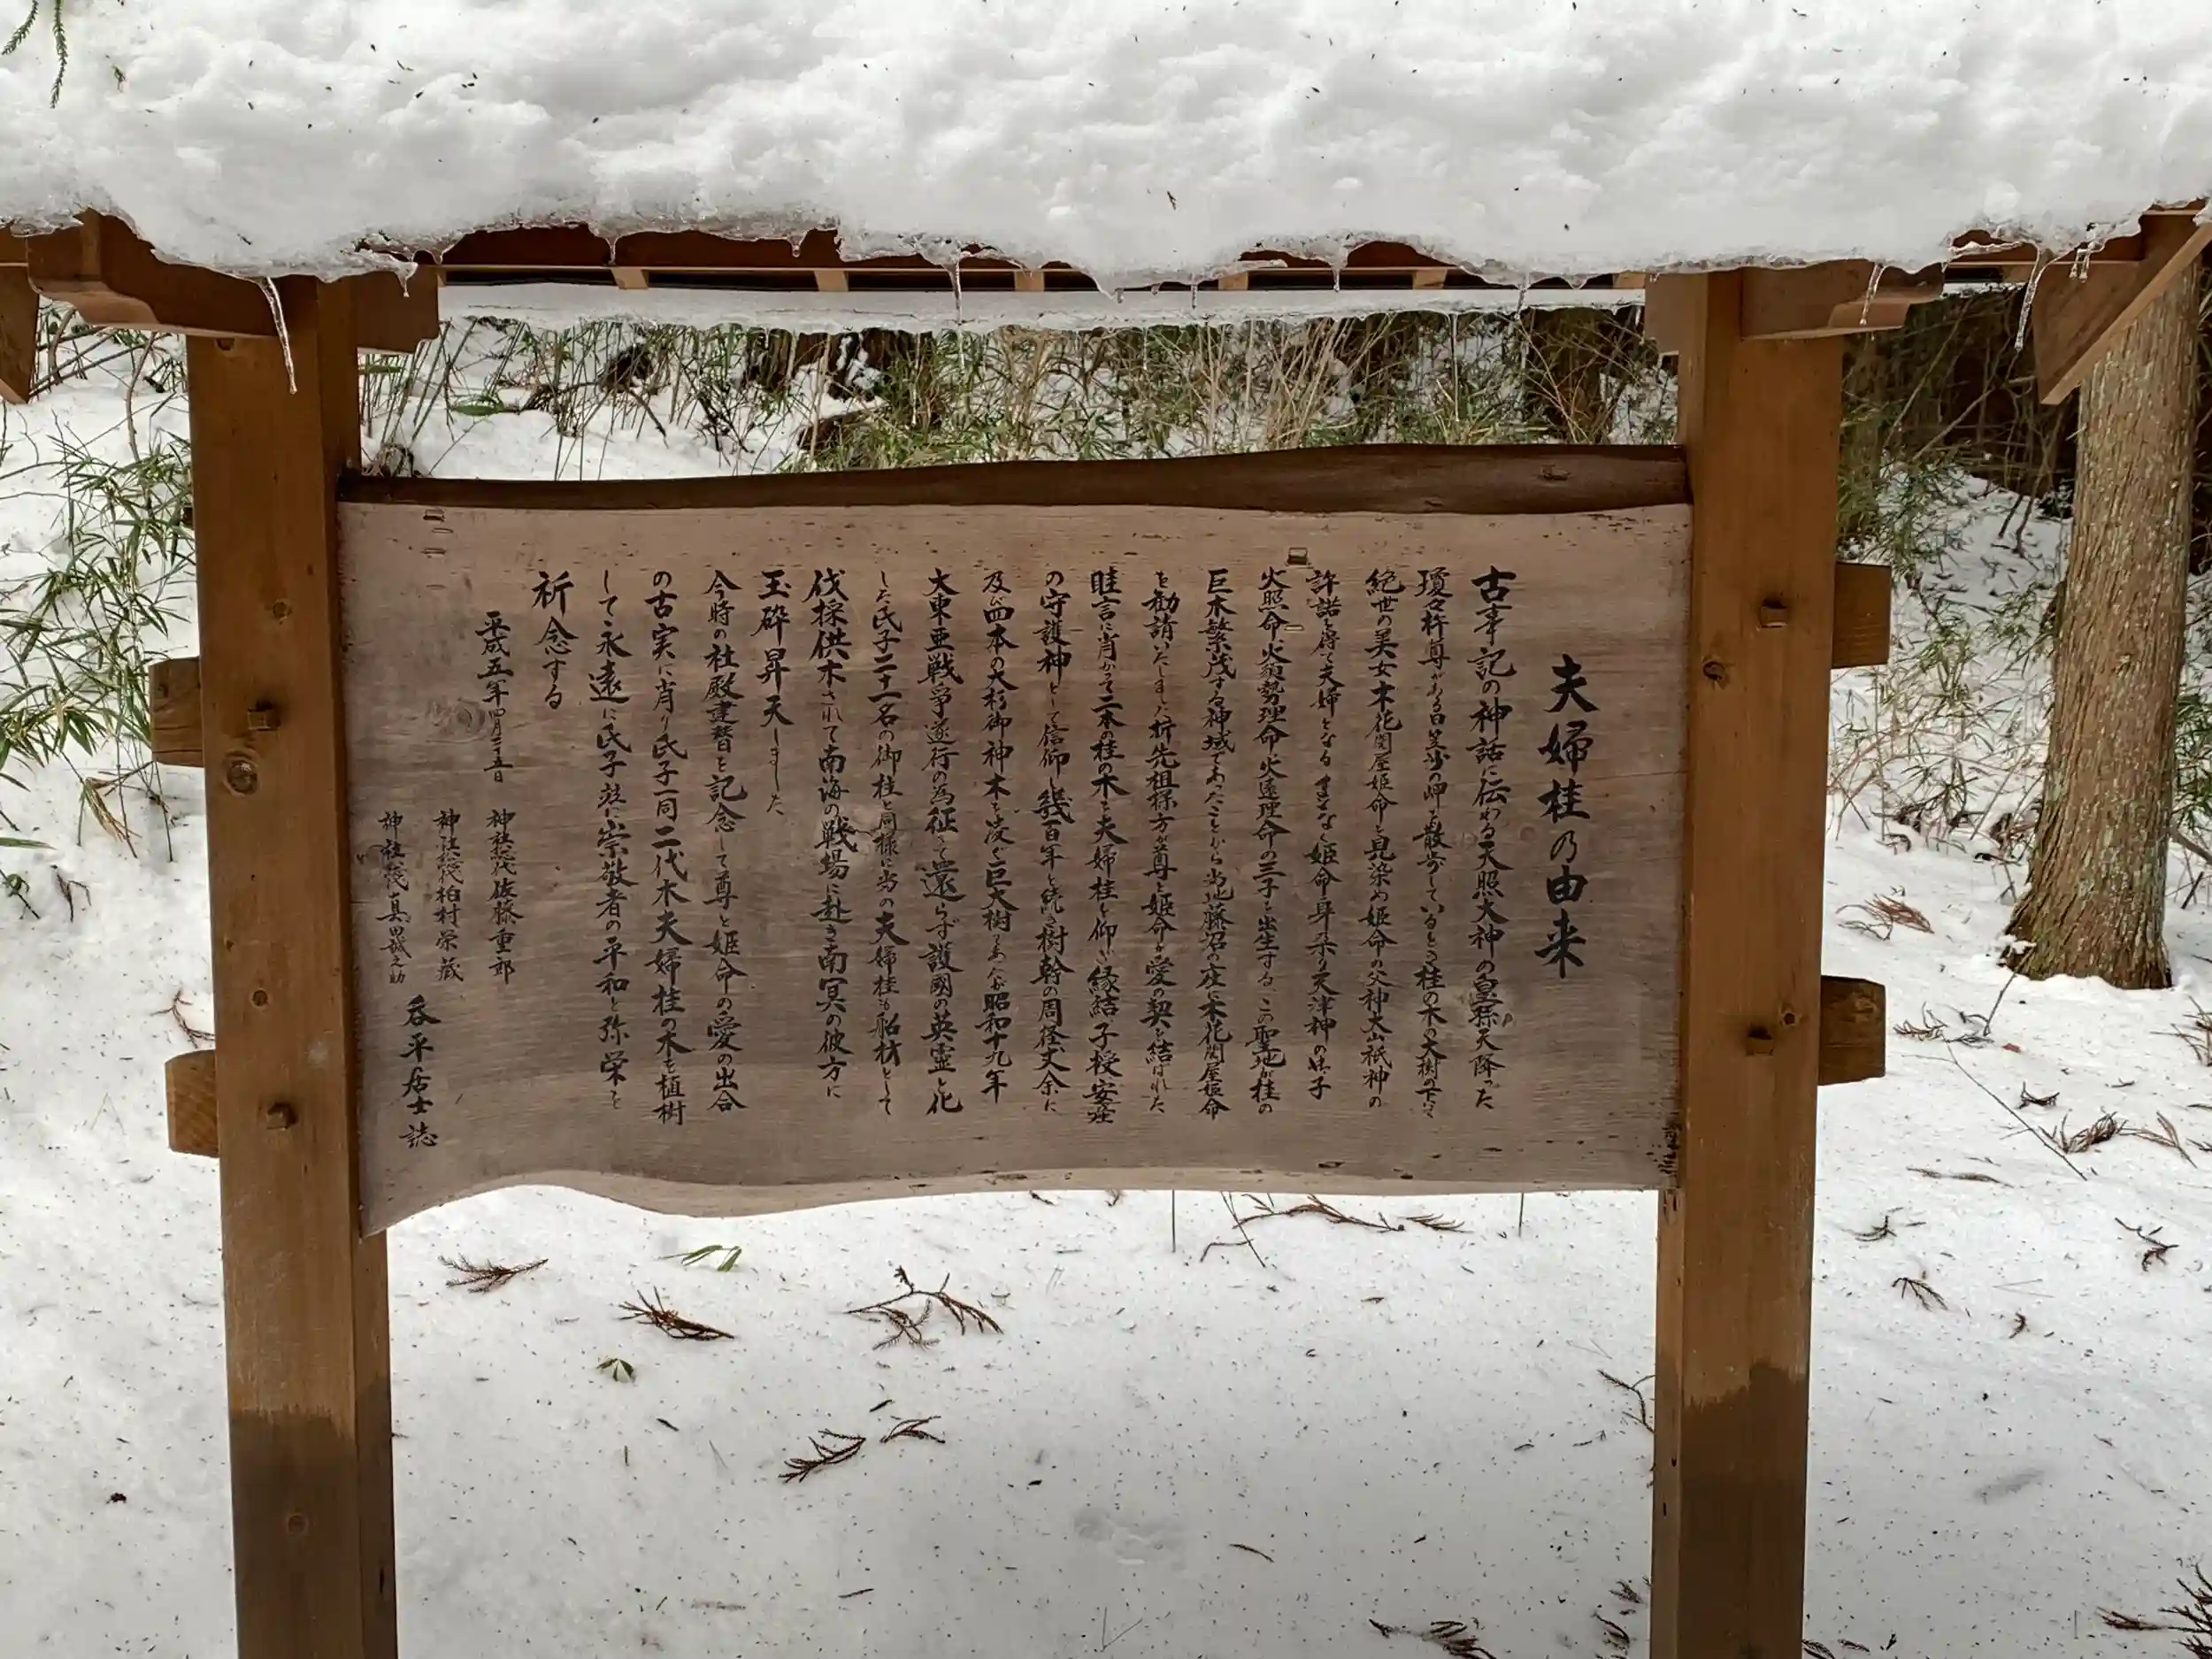 夫婦桂の由来
古事記の神話に伝わる天照大神の皇孫天降った
瓊々杵尊がある日笠沙の岬を散歩しているとき桂の木の大樹の下にて
絶世の美女木花開屋姫命を見染め姫命の父神大山祇神の
許諾を得て夫婦となる まもなく姫命は身ごもり天津神の御子
火照命火須勢理命火遠理命の三子を出生する この聖地が桂の
巨木繁茂する神域であったことから当地藤沼の庄に木花開屋姫命
を勧請いたしました 折先祖様方が尊と姫命が愛の契を結ばれた
旺言に肖かって二本の桂の木を夫婦桂と仰ぎ縁結子授安産
の守護神として信仰し幾百年と続き樹幹の周径丈余に
及び四本の大杉御神木を凌ぐ巨大樹であったが昭和十九年
大東亜戦争遂行の為征って還らず護國の英霊と化
した氏子二十一名の御柱と同様に当の夫婦桂も船材として
伐採供木されて南海の戦場に赴き南冥の彼方に
玉砕昇天しました
今時の社殿建替を記念して尊と姫命の愛の出合
の古実に肖り氏子一同二代木夫婦桂の木を植樹
して永遠に氏子並に崇敬者の平和と弥栄を
祈念する
平成五年四月二十五日
神社総代佐藤重郎
神社総代柏村栄蔵
神社総代真田誠之助
呑平居士誌